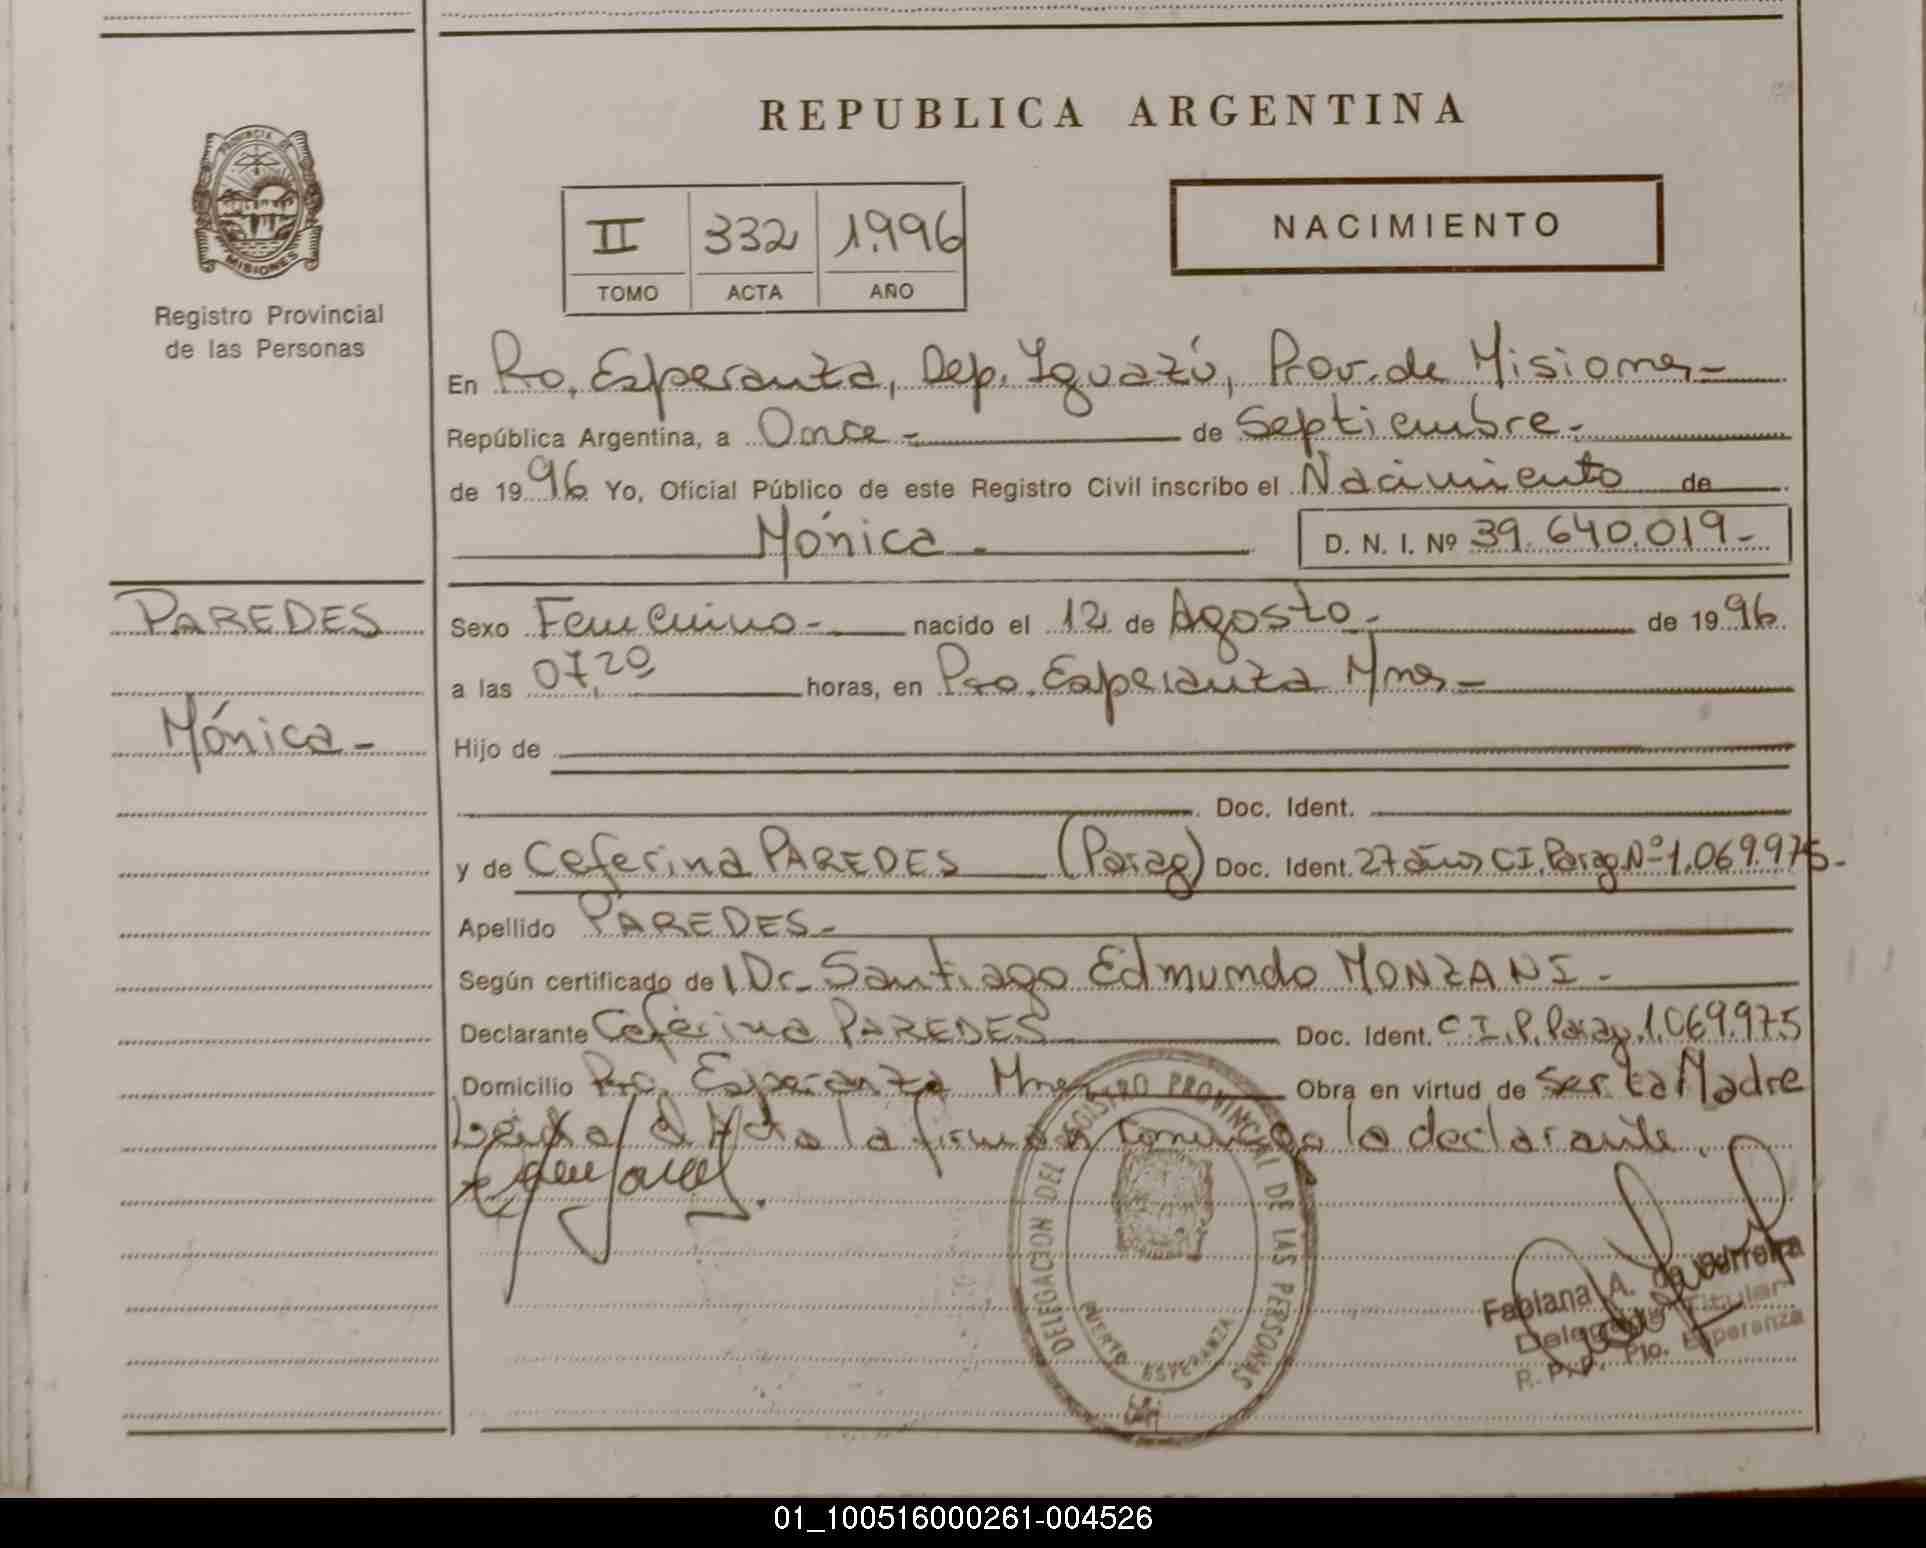 REPUBLICA ARGENTINA
PROVINCIA DE MISIONES
Registro Provincial
de las Personas
II 332 1.996
TOMO ACTA AÑO
NACIMIENTO
En Pto. Esperanza, Dep. Iguazú, Prov. de Misiones-
República Argentina, a Once- de Septiembre-
de 1996 Yo, Oficial Público de este Registro Civil inscribo el Nacimiento de
Mónica- D. N. I. Nº 39.640.019-
PAREDES
Mónica-
Sexo Femenino- nacido el 12 de Agosto- de 1996
a las 07,20 horas, en Pto. Esperanza Mnes-
Hijo de
Doc. Ident.
y de Ceferina PAREDES (Parag) Doc. Ident. 27 años C.I. Parag. Nº 1.069.975-
Apellido PAREDES-
Según certificado de Dr. Santiago Edmundo MONZANI-
Declarante Ceferina PAREDES Doc. Ident. C.I.P. Parag. 1.069.975
Domicilio Pto. Esperanza Mnes Obra en virtud de ser la Madre
Leída el Acta la firma conmigo la declarante.
DELEGACION DEL REGISTRO PROVINCIAL DE LAS PERSONAS
PUERTO ESPERANZA
Fabiana A. de
Titular
R. P. P. Pto. Esperanza
01_100516000261-004526